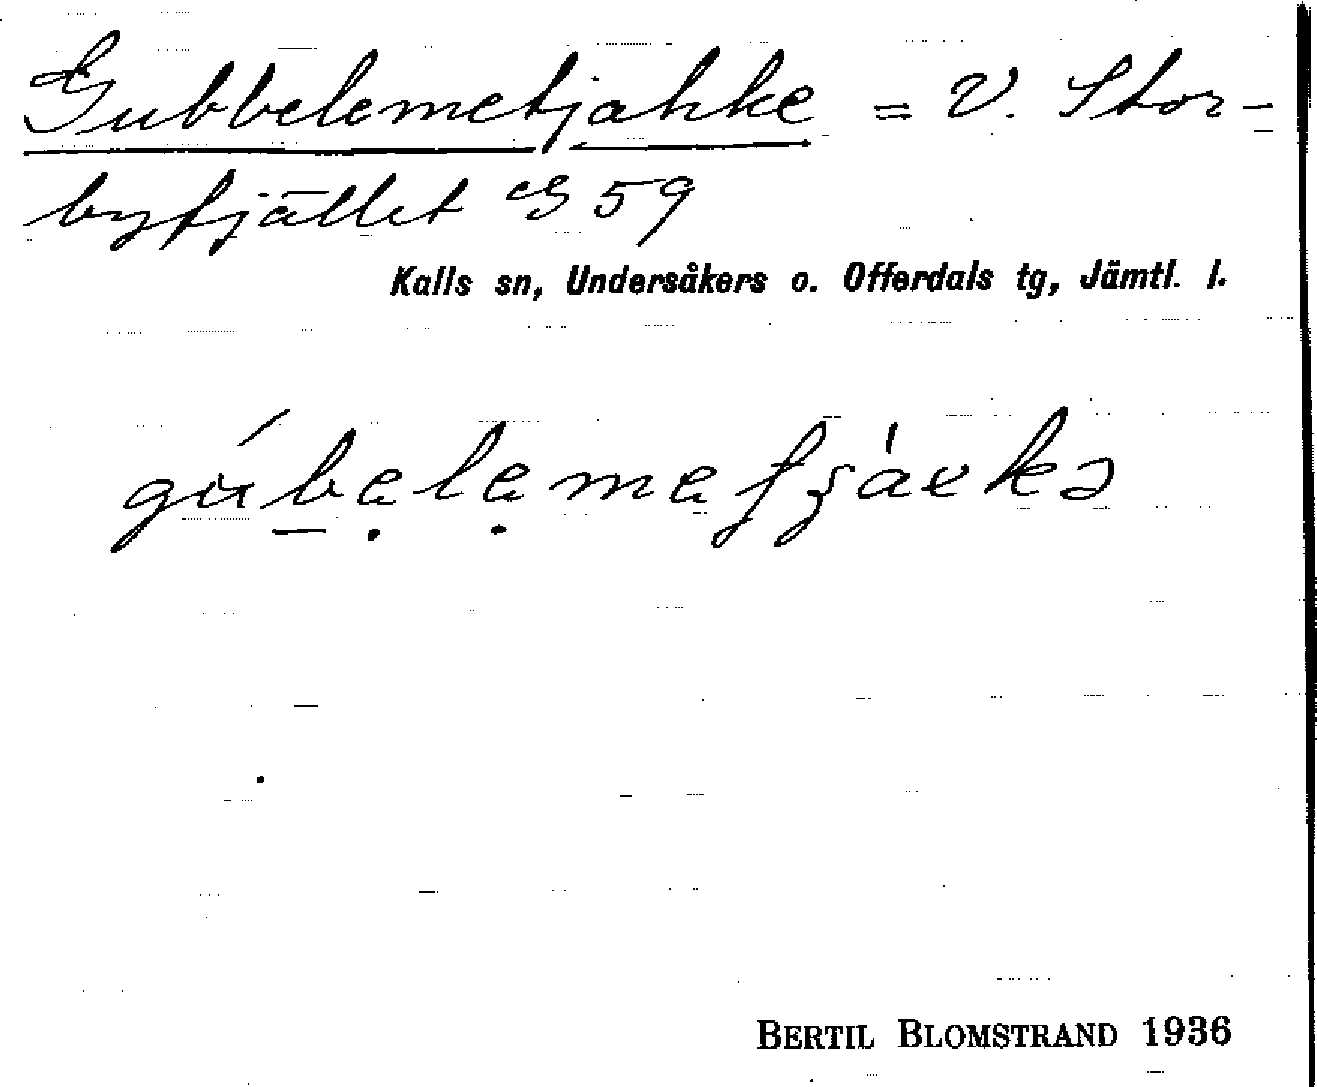 Gubbelemetjahke = V. Stor-
byfjället G 59
Kalls sn, Undersåkers o. Offerdals tg, Jämtl. l.
BERTIL BLOMSTRAND 1936